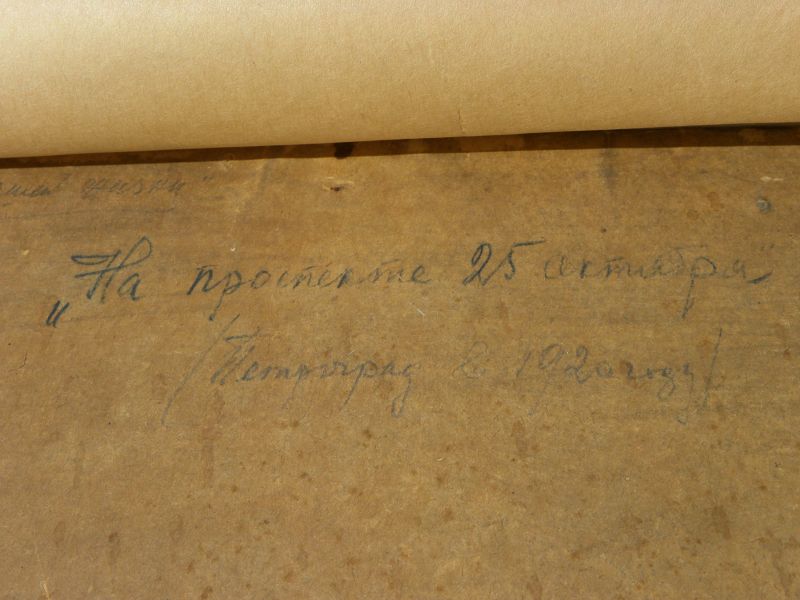 жизни"
„На проспекте 25 октября"
(Петроград в 1920 году)